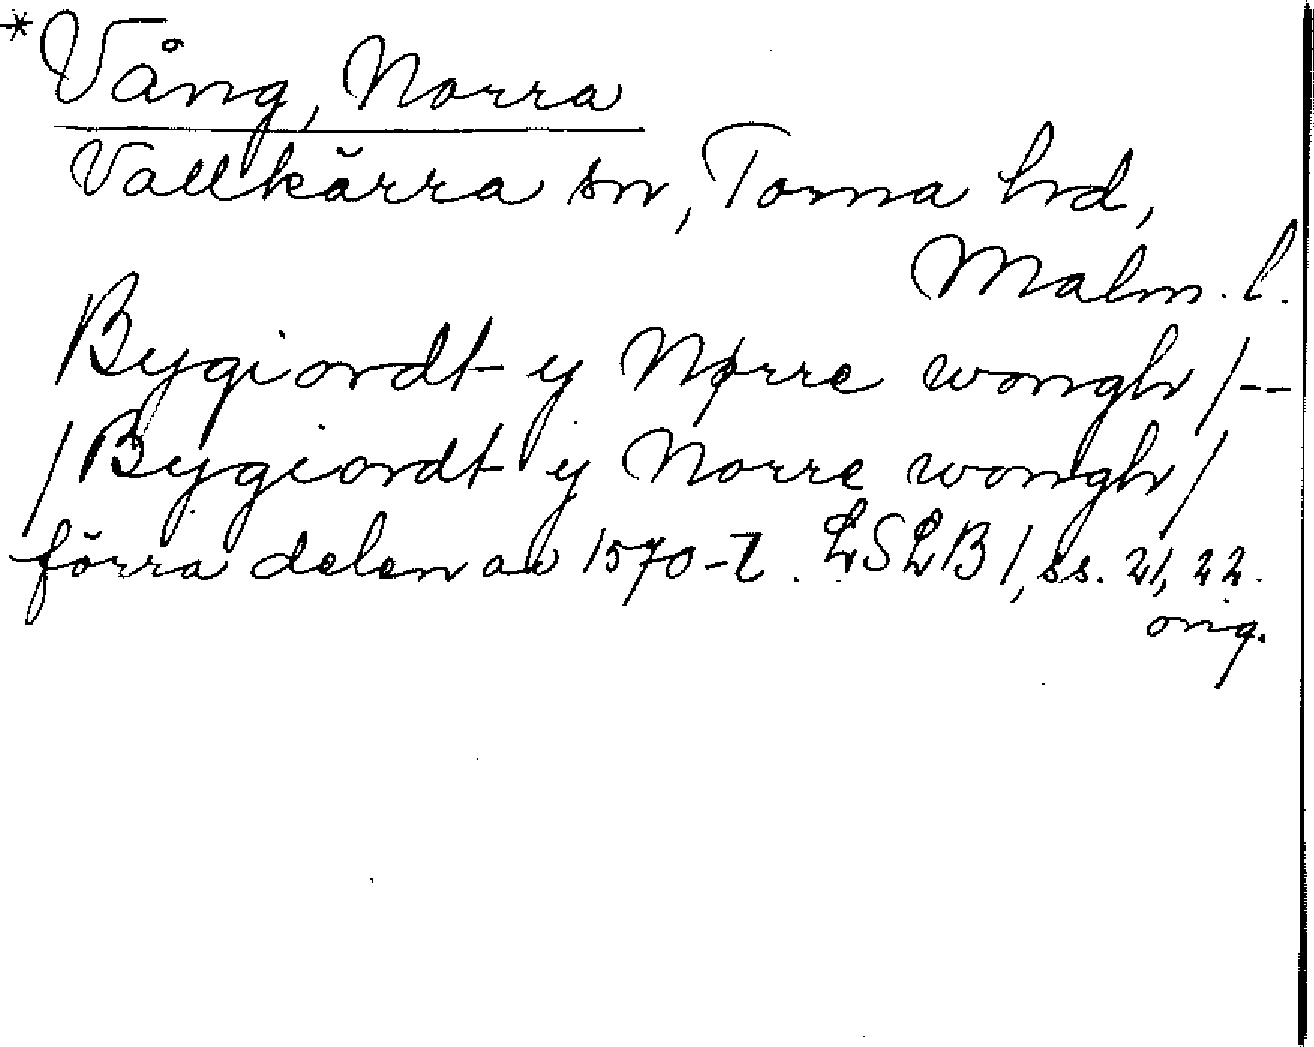 *Vång, Norra
Vallkärra sn, Torna hd,
Malm. l.
Bygiordt y Nørre wongh /--
/Bygiordt y Norre wongh/
förra delen av 1570-t. LSLB 1, ss. 21, 22.
orig.